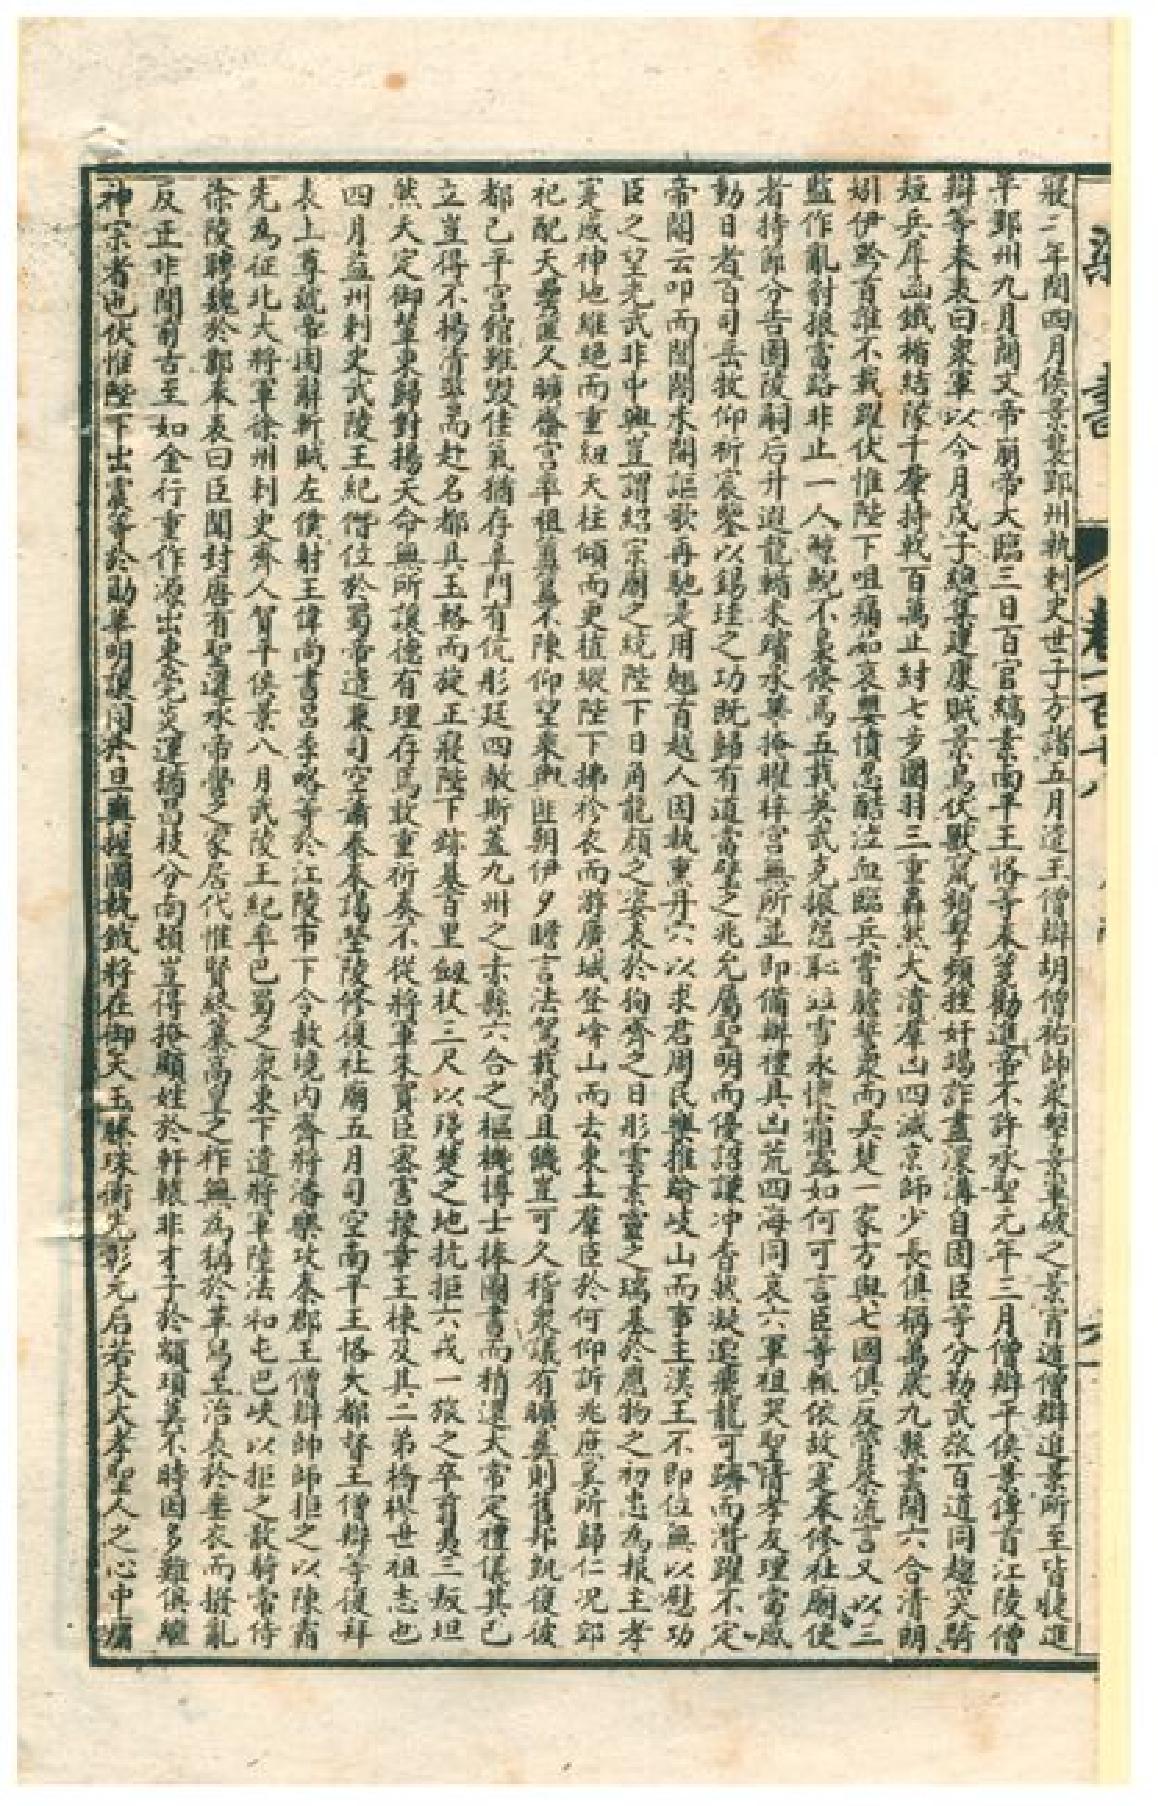 書
寢二年閏四月侯景襲郢州執刺史世子方諸五月遣王僧辯胡僧祐帥衆擊景軍破之景宵遁僧辯追景所至皆捷進
平郢州九月簡文帝崩帝大臨三日百官縞素南平王恪等奉箋勸進帝不許承聖元年三月僧辯平侯景傳首江陵僧
辯等奉表曰衆軍以今月戊子總集建康賊景鳥伏獸窮頻擊頻挫奸竭詐盡深溝自固臣等分勒武旅百道同趨突騎
短兵犀函鐵楯結隊千羣持戟百萬止紂七步圍羽三重轟然大潰羣凶四滅京師少長俱稱萬歲九縣雲開六合清朗
矧伊黔首誰不載躍伏惟陛下咀痛茹哀嬰憤忍酷泣血臨兵嘗膽誓衆而吳楚一家方與七國俱反管蔡流言又以三
監作亂豺狼當路非止一人鯨鯢不梟倐焉五載英武克振怨恥並雪永懷霜露如何可言臣等輒依故實奉修社廟使
者持節分告園陵嗣后升遐龍輴未殯承華掩曜梓宮無所並即備辦禮具凶荒四海同哀六軍袒哭聖情孝友理當感
動日者百司岳牧仰祈宸鑒以錫珪之功既歸有道當璧之兆允屬聖明而優詔謙冲杳然凝邈飛龍可躋而潛躍不定
帝閽云叩而閶闔未開謳歌再馳是用翹首越人固執熏丹穴以求君周民樂推踰岐山而事主漢王不即位無以慰功
臣之望光武非中興豈謂紹宗廟之統陛下日角龍顏之姿表於徇齊之日彤雲素靈之瑞基於應物之初忠為報主孝
寔感神地維絕而重紐天柱傾而更植縱陛下拂袗衣而游廣城登嵱山而去東土羣臣於何仰訴兆庶奚所歸仁況郊
祀配天罍匱久曠齋宮率祖簠簋不陳仰望鑾輿匪朝伊夕瞻言法駕載渴且饑豈可久稽衆議有曠彝則舊邦凱復彼
都已平宮館雖毀佳氣猶存皋門有伉彤廷四敞斯蓋九州之赤縣六合之樞機博士捧圖書而稍還大常定禮儀其已
立豈得不揚清警而赴名都具玉輅而旋正寢陛下跡基百里劔杖三尺以殘楚之地抗拒六戎一旅之卒剪夷三叛坦
然天定御輦東歸對揚天命無所讓德有理存焉敢重祈奏不從將軍朱買臣密害豫章王棟及其二弟橋樛世祖志也
四月益州刺史武陵王紀僭位於蜀帝遣兼司空蕭泰奉謁塋陵修復社廟五月司空南平王恪大都督王僧辯等復拜
表上尊號帝固辭斬賊左僕射王偉尚書呂季略等於江陵市下令赦境內齊將潘樂攻秦郡王僧辯帥師拒之以陳霸
先為征北大將軍徐州刺史齊人賀平侯景八月武陵王紀率巴蜀之衆東下遣將軍陸法和屯巴峽以拒之散騎常侍
徐陵聘魏於鄴奉表曰臣聞封唐有聖還承帝嚳之家居代惟賢終纂高皇之祚無為稱於革舄至治表於垂衣而撥亂
反正非聞前古至如金行重作源出東莞炎運猶昌枝分南頓豈得掩顯姓於軒轅非才子於顓頊莫不時因多難俱繼
神宗者也伏惟陛下出震等於勛華明讓同於旦奭握圖執鉞將在御天玉縢珠衡先彰元后若夫大孝聖人之心中庸